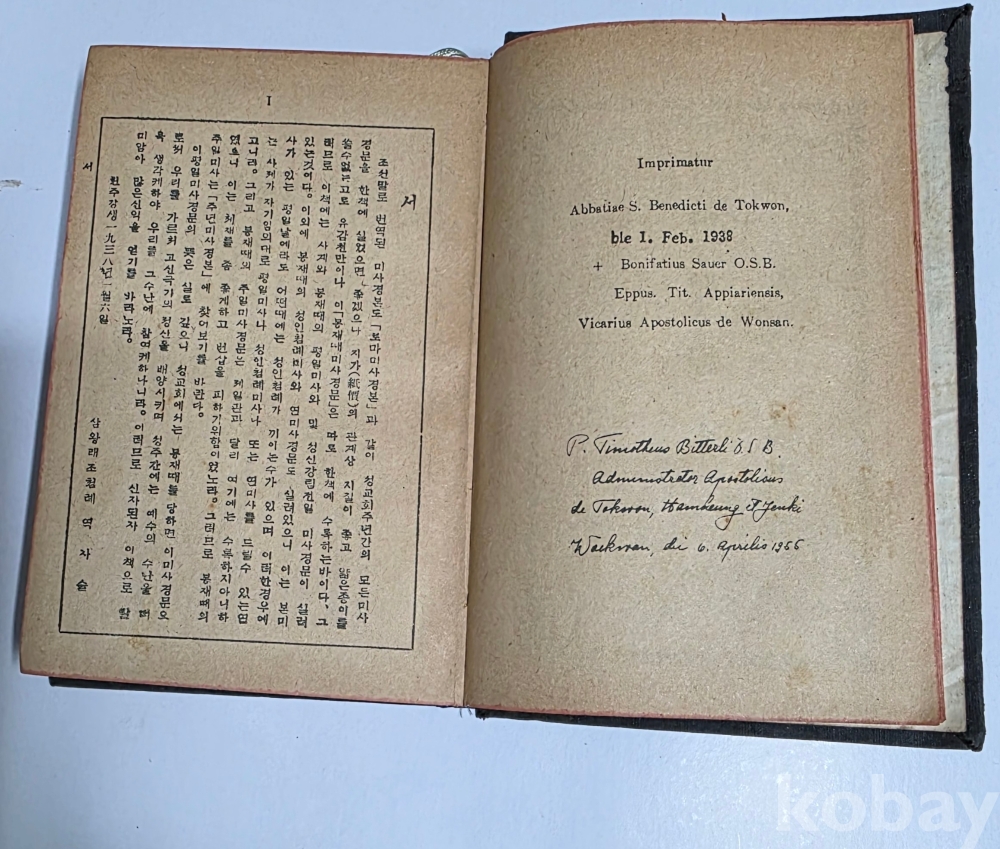 Imprimatur
Abbatiae S. Benedicti de Tokwon,
ble I. Feb. 1938
+ Bonifatius Sauer O.S.B.
Eppus. Tit. Appiariensis,
Vicarius Apostolicus de Wonsan.
P. Timotheus Bitterli O.S.B.
Administrator Apostolicus
de Tokwon, Hamheung et Yenki
Waekwan, die 6. Aprilis 1956
I
서
조선말로 번역된 미사경본도 「로마미사경본」과 같이 성교회주년간의 모든미사
경문을 한책에 실었으면 좋겠으나 지가(紙價)의 관계상 지질이 좋고 얇은종이를
쓸수없는고로 유감천만이나 이「봉재내미사경문」은 따로 한책에 수록하는바이다. 그
러므로 이책에는 사계와 봉재때의 평일미사와 및 성신강림전일 미사경문이 실려
있는것이다. 이외에 봉재때의 성인첨례미사와 연미사경문도 실려있으니 이는 본미
사가 있는 평일날에라도 어떤때에는 성인첨례가 끼이는수가 있으며 이러한경우에
는 사제가 자기임의대로 평일미사나 성인첨례미사나 또는 연미사를 드릴수 있는연
고니라. 그리고 봉재때의 주일미사경문은 제일권과 달리 여기에는 수록하지아니하
였으니 이는 체재를 좀 좋게하고 번잡을 피하기위함이었노라. 그러므로 봉재때의
주일미사는「주년미사경본」에 찾어보기를 바란다.
이평일미사경문의 뜻은 실로 깊으니 성교회에서는 봉재때를 당하면 이미사경문으
로써 우리를 가르쳐 고신극기의 정신을 배양시키며 성주간에는 예수의 수난을 더
욱 생각케하야 우리를 그 수난에 참여케하나니라. 이러므로 신자된자 이책으로 말
미암아 많은신익을 얻기를 바라노라.
천주강생一九三八年一月六일
삼왕래조첨례 역자 술
서
kobay